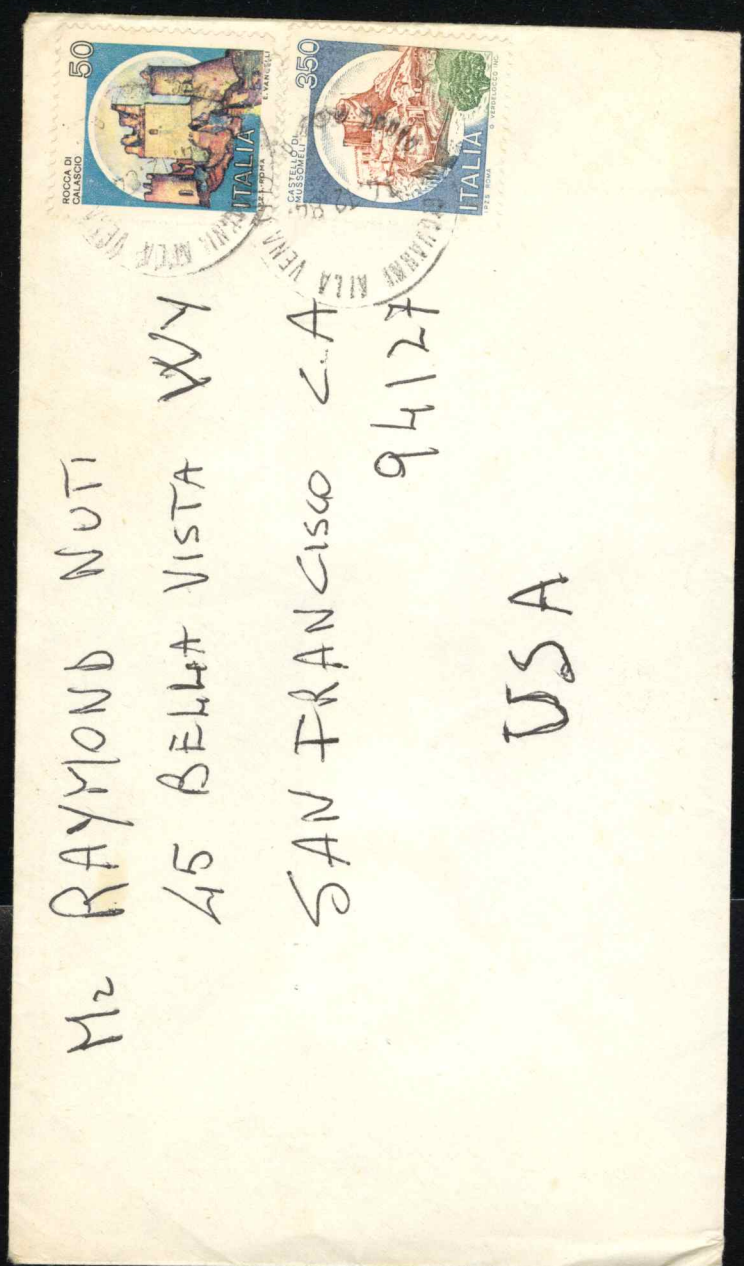 50
ROCCA DI
CALASCIO
ITALIA
E. VANGELLI
350
CASTELLO DI
MUSSOMELI
ITALIA
I.P.Z.S. ROMA
ALLA VENA
Mr RAYMOND NUTI
45 BELLA VISTA WY
SAN FRANCISCO C.A
94127
USA